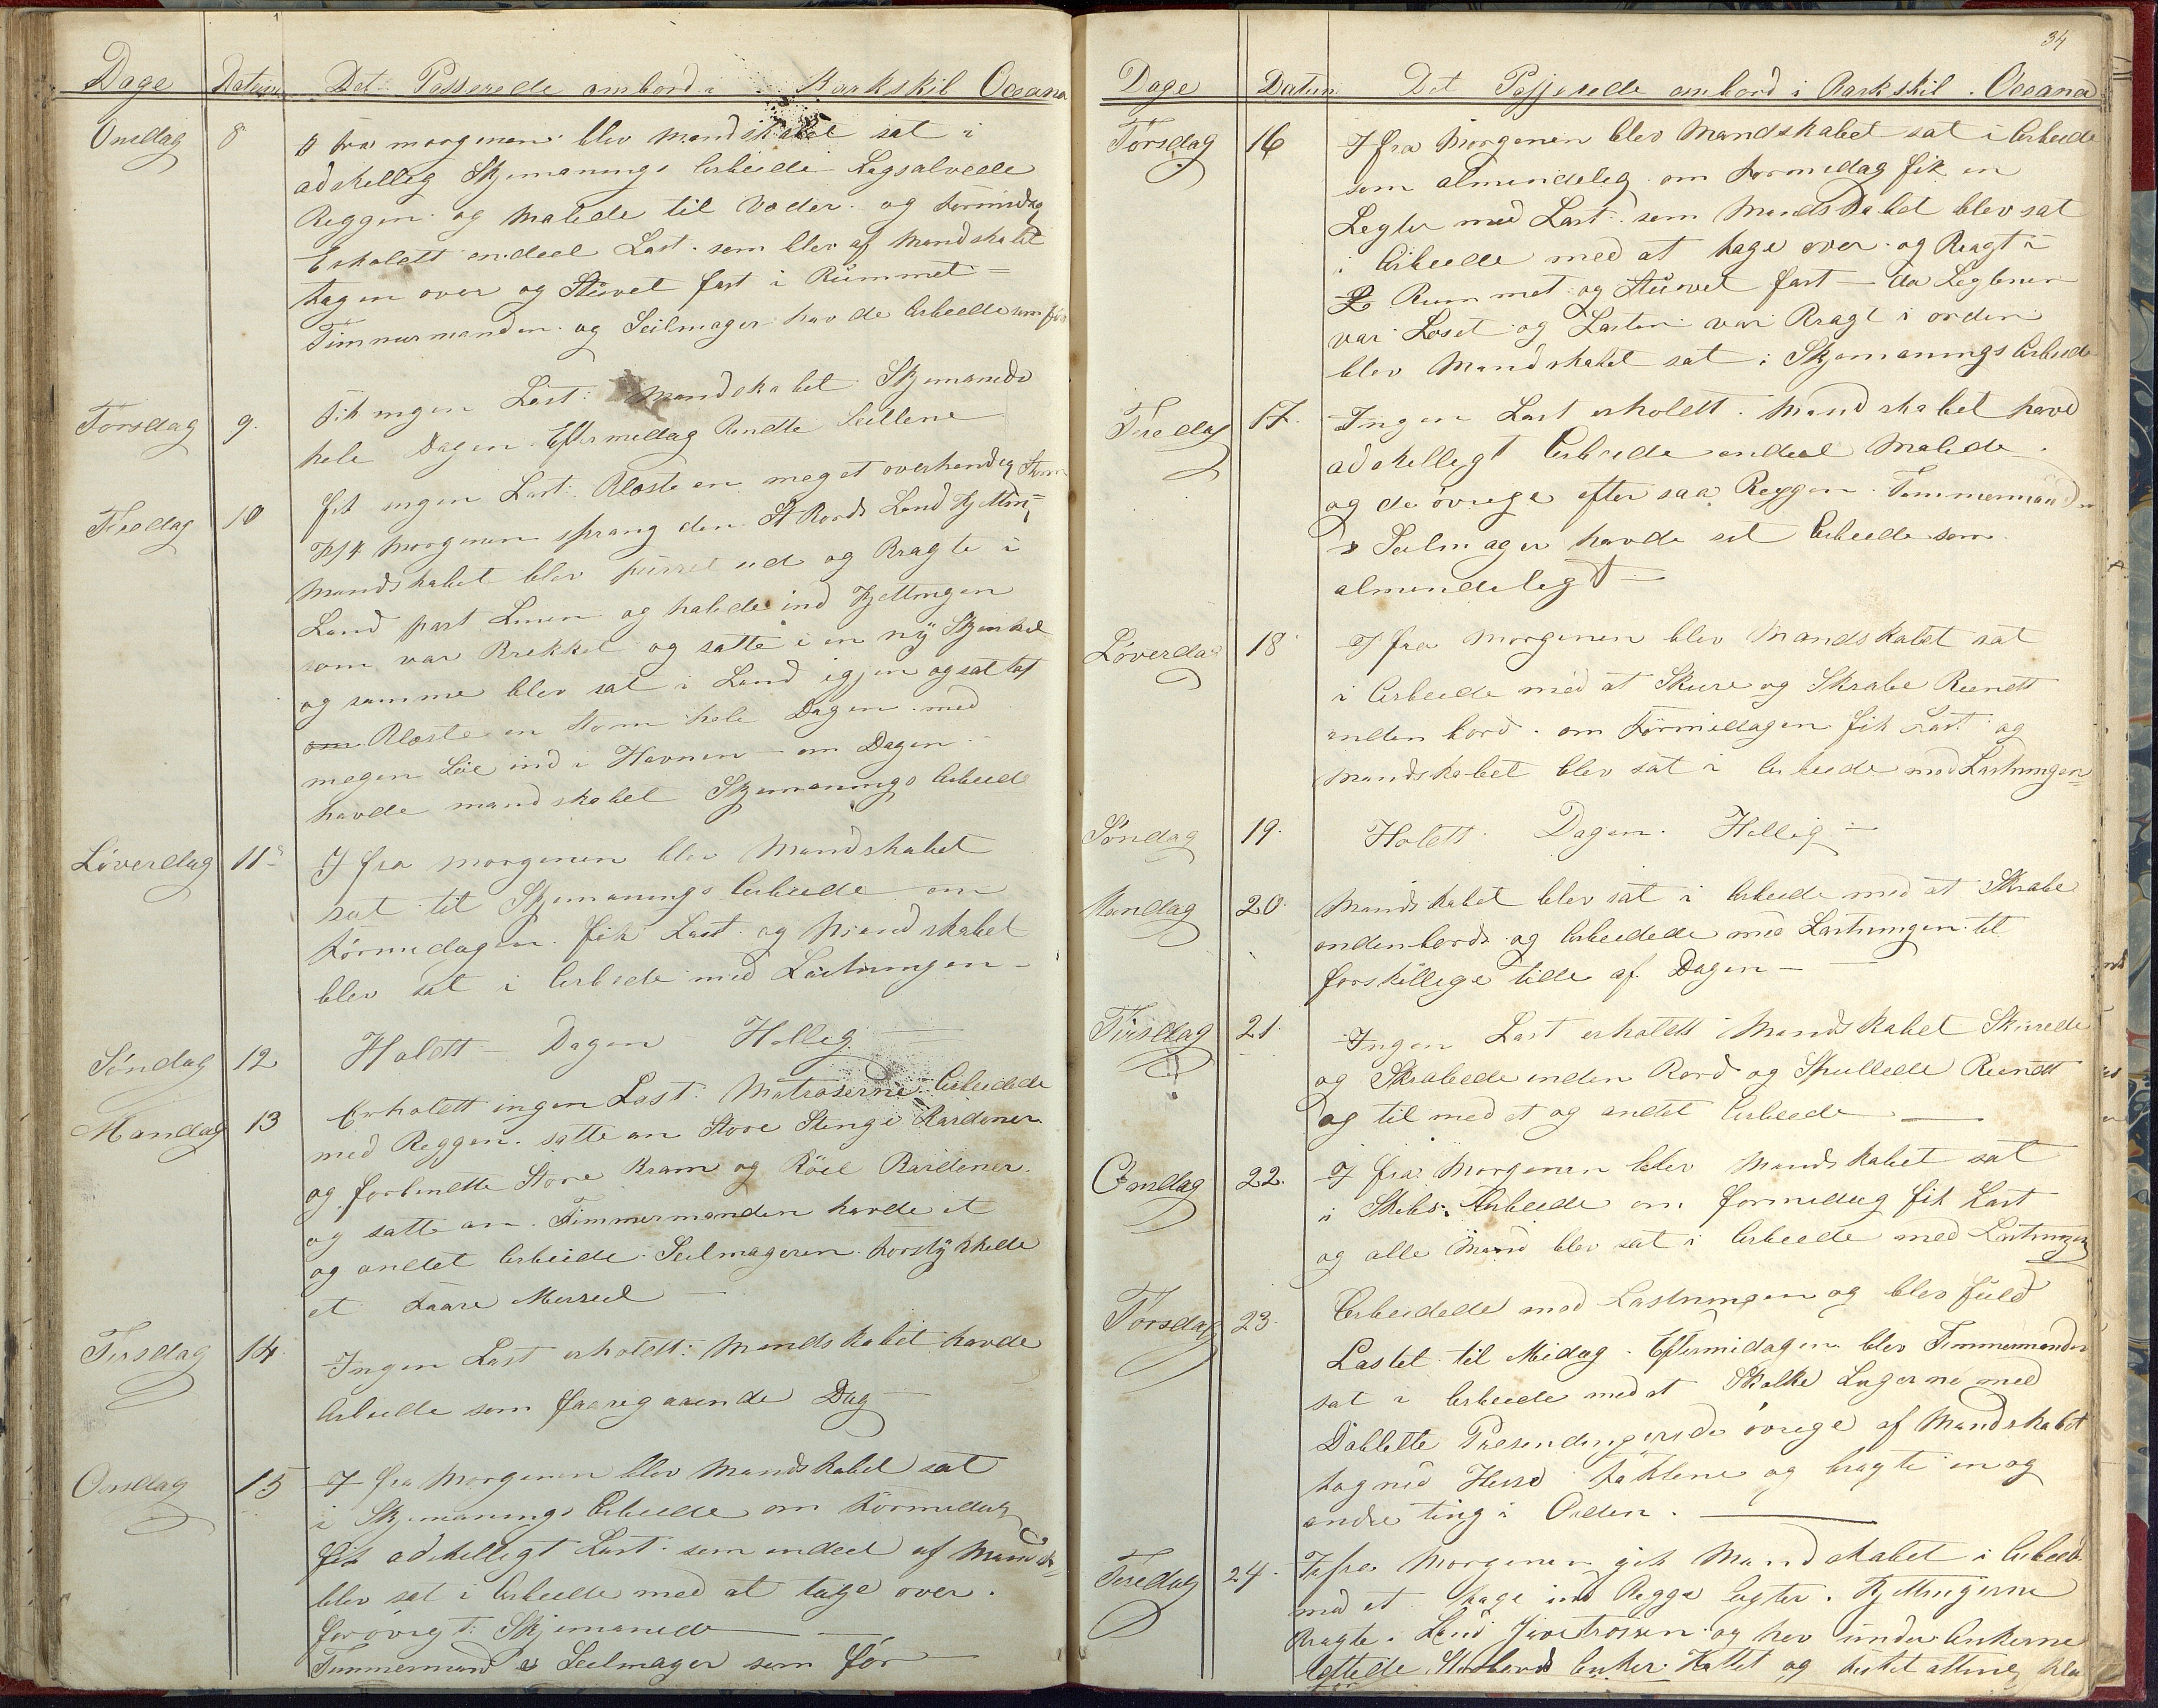 Dage Datum Det Passerede ombord i Barkskib Oceana
Onsdag 8 I fra morgenen blev mandskabet sat i
adskillig Skjemanings Arbeide Lagsalvede
Reggen og Malede til Væder og Formidag
Erholdtt endeel Last som blev af Mandskabet
tagen over og Stuvet fast i Rummet =
Timmermanden og Seilmager havde Arbeide som før
Torsdag 9. Fik ingen Last: Mandskabet Skjemanede
hele Dagen Eftermedag Rendte Seillene
Fredag 10 fik ingen Last. Blæste en meget overhendig Storm
Kl 4 Morgenen sprang den St Bords Land Kjetting
Mandskabet blev purret ud og Bragte i
Land part Linen og halede ind Kjettingen
som var Brekket og satte i en ny Skjenkel
og samme blev sat i Land igjen og sat tot
Blæste en Storm hele Dagen med
megen Søe ind i Havnen – om Dagen
havde mandskabet Skjemanings Arbeide
Löverdag 11 I fra morgenen blev Mandskabet
sat til Skjemanings Arbeide om
Formedagen fik Last og Mandskabet
blev sat i Arbeide med Lastningen –
Søndag 12 Holdtt – Dagen Hellig
Mandag 13 Erholdtt ingen Last: Matroserne Arbeidede
med Reggen. satte an Store Stenge Bardener
og forbendtte Store Bram og Röiel Bardener.
og satte an. Timmermanden havde et
og andet Arbeide. Seilmageren forstykkede
et Faare Merseil –
Tirsdag 14. Ingen Last erholdtt: Mandskabet havde
Arbeide som faaregaaende Dag –
Onsdag 15 I fra Morgenen blev Mandskabet sat
i Skjemanings Arbeide om Formedag
fik adskelligt Last som endeel af Mandsk=
blev sat i Arbeide med at tage over.
forövrigt Skjemanede
Timmermand & Seilmager som før
34
Dage Datum Det Passerede ombord i Barkskib Oceana
Torsdag 16 I fra Morgenen blev Mandskabet sat i Arbeide
som almindelig om Formedag fik en
Legter med Last som Mandskabet blev sat
i Arbeide med at tage over og Bragt i
Rummet og Stuvet fast – da Legteren
var Loset og Lasten var Bragt i orden
blev Mandskabet sat i Skjemanings Arbeide
Fredag 17. Ingen Last erholdtt. Mandskabet havd
adskelligt Arbeide endeel Malede
og de övrige efter saa Reggen. Timmermanden
& Seilmager havde sit Arbeide som
almendeligt –
Löverdag 18 I fra morgenen blev Mandskabet sat
i Arbeide med at Skure og Skrabe Reendtt
inden bord. om Formidagen fik Last og
Mandskabet blev sat i Arbeide med Lastningen=
Söndag 19. Holdtt Dagen Hellig –
Mandag 20. Mandskabet blev sat i Arbeide med at Skrabe
indenbords og Arbeidede med Lastningen til
forskillige tider af Dagen –
Tirsdag 21. Ingen Last erholdtt Mandskabet Skurede
og Skrabede inden Bord og Spullede Reendtt
og til med et og andet Arbeide –
Onsdag 22. I fra Morgenen blev Mandskabet sat
i Skibs: Arbeide om formedag fik Last
og alle Mand blev sat i Arbeide med Lastningen
Torsdag 23. Arbeidede med Lastningen og blev fuld
Lastet til Midag. Eftermidagen blev Timmermanden
sat i Arbeide med at Skalke Lugerne med
Dobbelte Presendinger de övrige af Mandskabet
tog ned Heise Taklene og bragte en og
andre ting i Orden.
Fredag 24. I fra Morgenen gik Mandskabet i Arbeide
med at tage ind Bagga Legter. Kjettingerne
Bragte i Land og hev under Ankerne
lettede Styrbords Anker Kattet og fisket